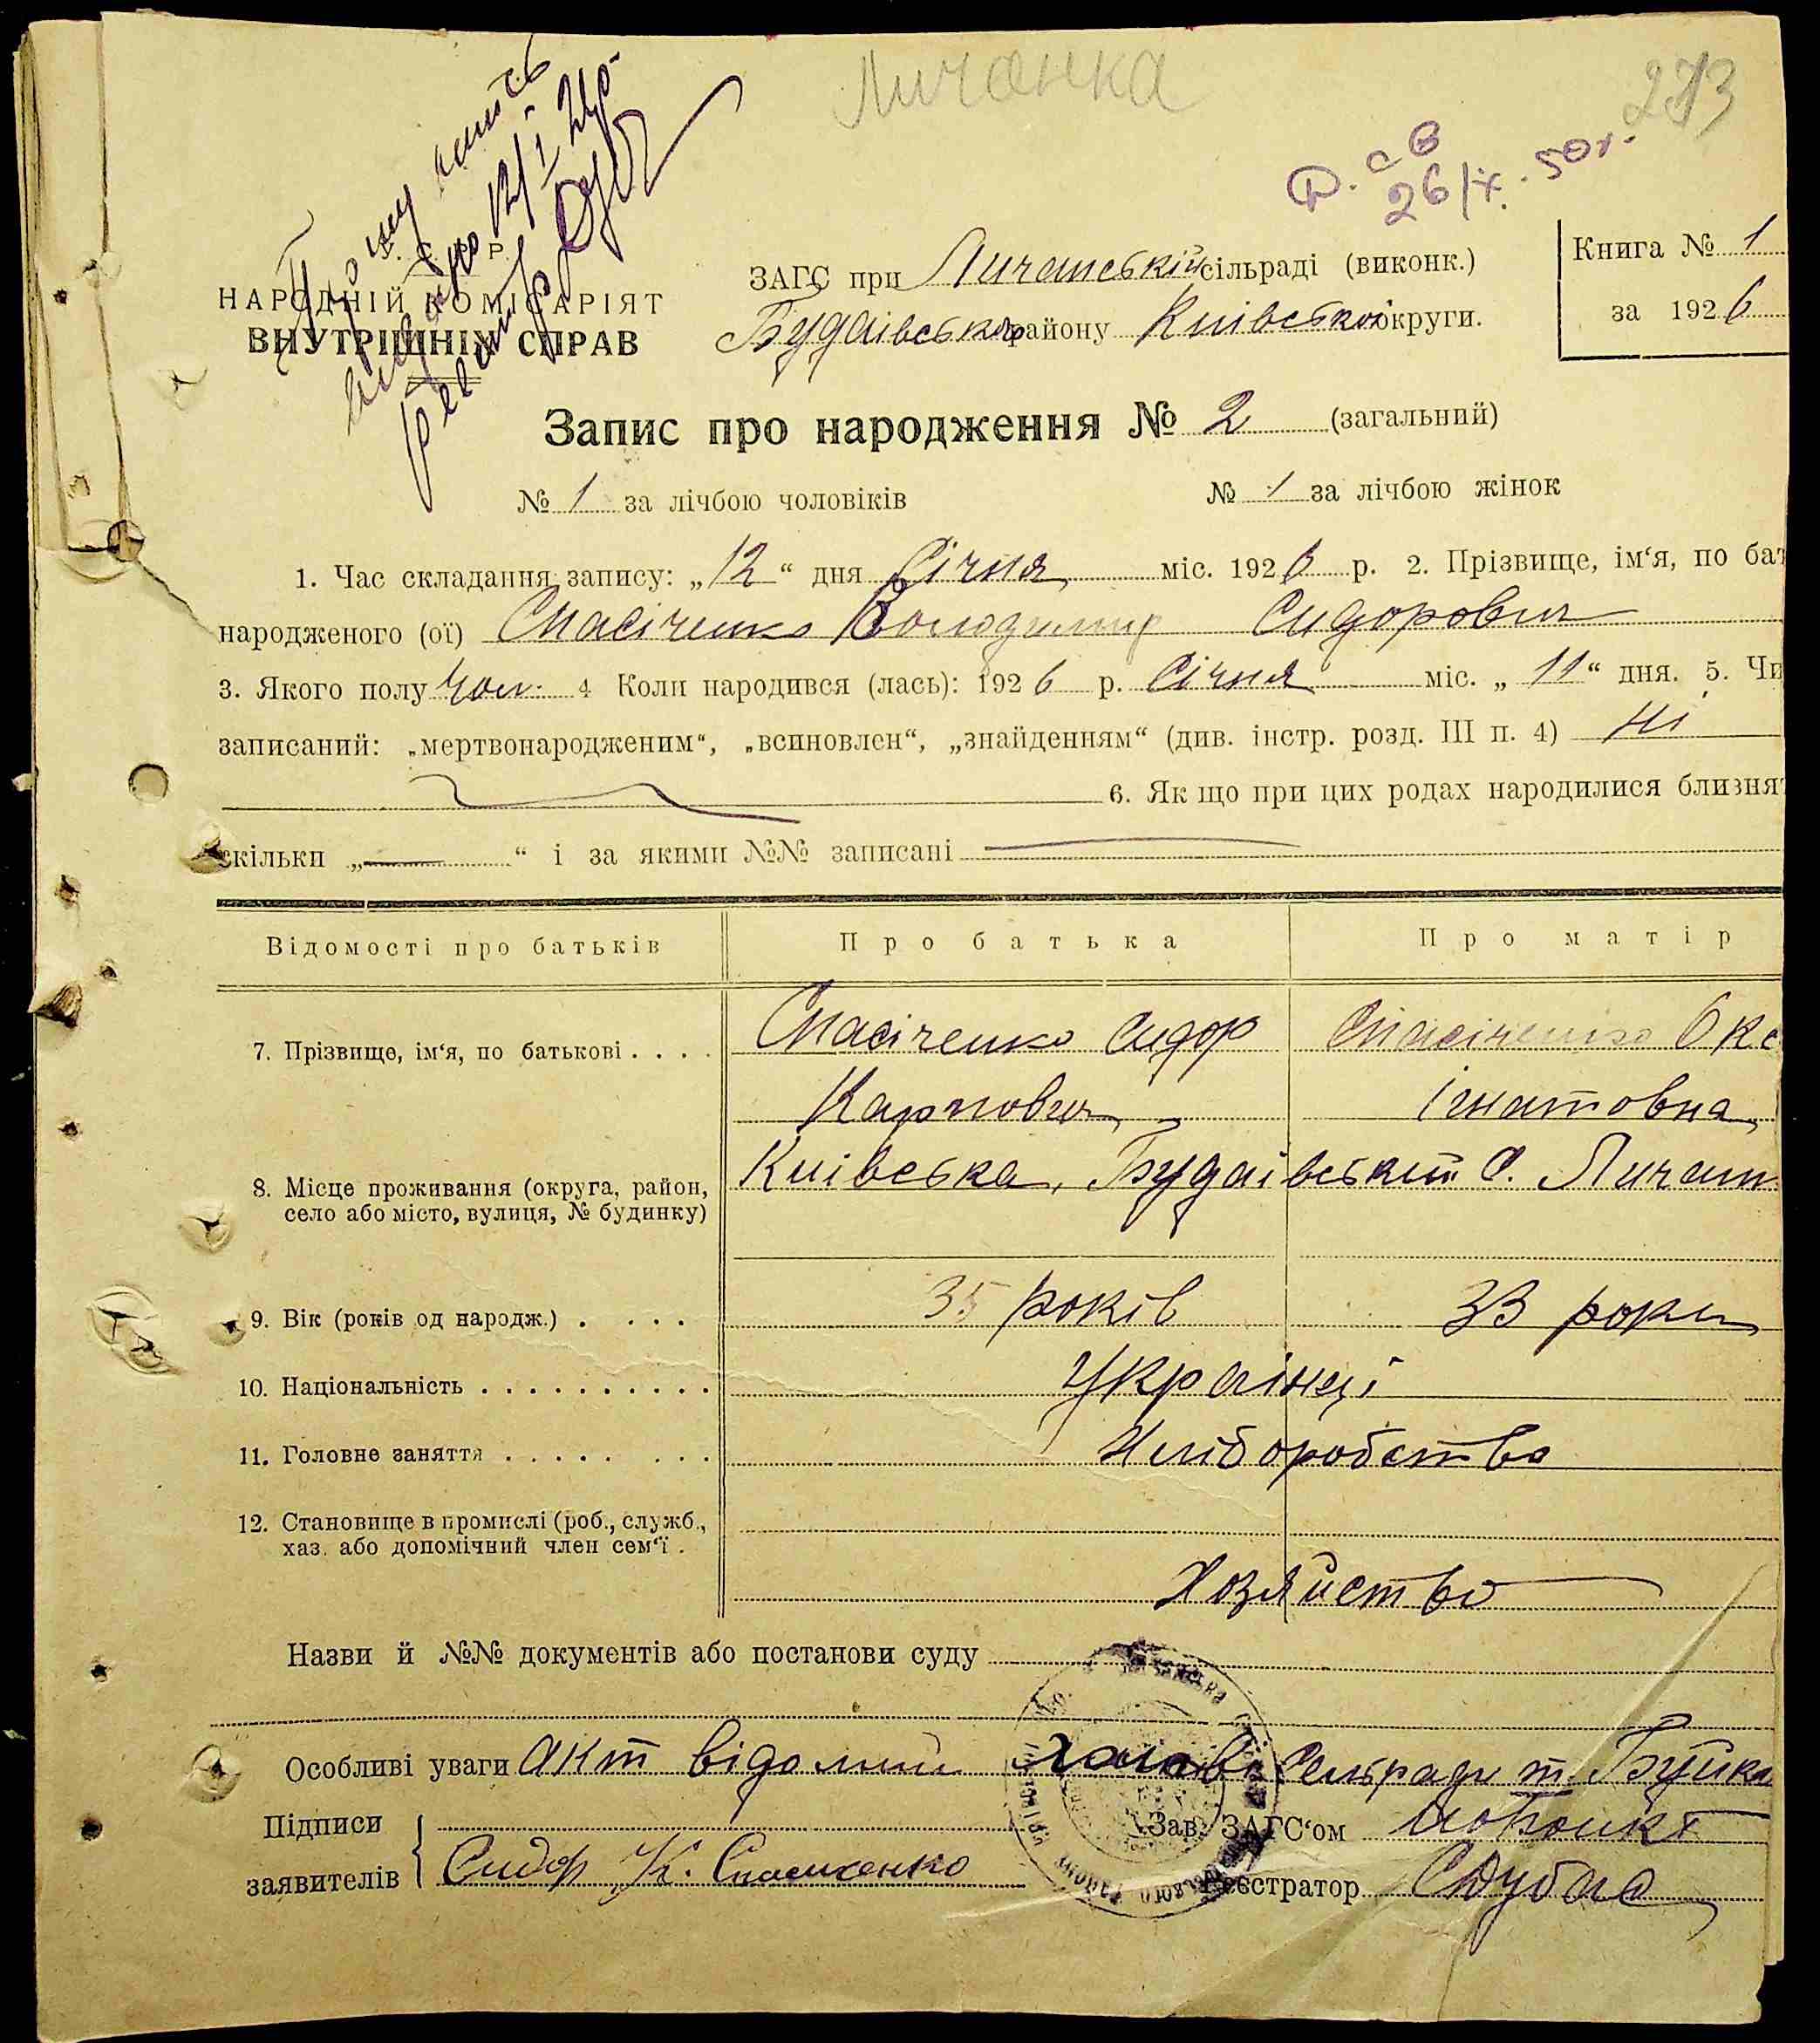 Личанка
273
26/ІХ. 50 г.
У. С. Р. Р.
НАРОДНІЙ КОМІСАРІЯТ
ВНУТРІШНІХ СПРАВ
ЗАГС при Личанській сільраді (виконк.)
Будаівськ району Киівської округи.
Книга № 1
за 1926
Запис про народження № 2 (загальний)
№ 1 за лічбою чоловіків № 1 за лічбою жінок
1. Час складання запису: „12“ дня Січня міс. 1926 р. 2. Прізвище, ім‘я, по бат
народженого (ої) Спасіченко Володимир Сидорович
3. Якого полу чол. 4 Коли народився (лась): 1926 р. Січня міс. „11“ дня. 5. Чи
записаний: „мертвонародженим“, „всиновлен“, „знайденням“ (див. інстр. розд. III п. 4) Ні
6. Як що при цих родах народилися близня
скільки „—“ і за якими №№ записані —
Відомості про батьків Про батька Про матір
7. Прізвище, ім‘я, по батькові . . . . Спасіченко Сидор Спасіченко Окс
Карпович Ігнатовна
8. Місце проживання (округа, район, Киівська, Будаівський С. Личан
село або місто, вулиця, № будинку)
9. Вік (років од народж.) . . . . . 35 років 33 роки
10. Національність . . . . . . . . . . Украінці
11. Головне заняття . . . . . . . . Хліборобство
12. Становище в промислі (роб., служб.,
хаз. або допомічний член сем‘ї .
Хозяйство
Назви й №№ документів або постанови суду
Особливі уваги акт відомий голові Сельради т. Буйка
Підписи Зав. ЗАГС‘ом
заявителів Сидор К. Спасиченко Реєстратор СДубас